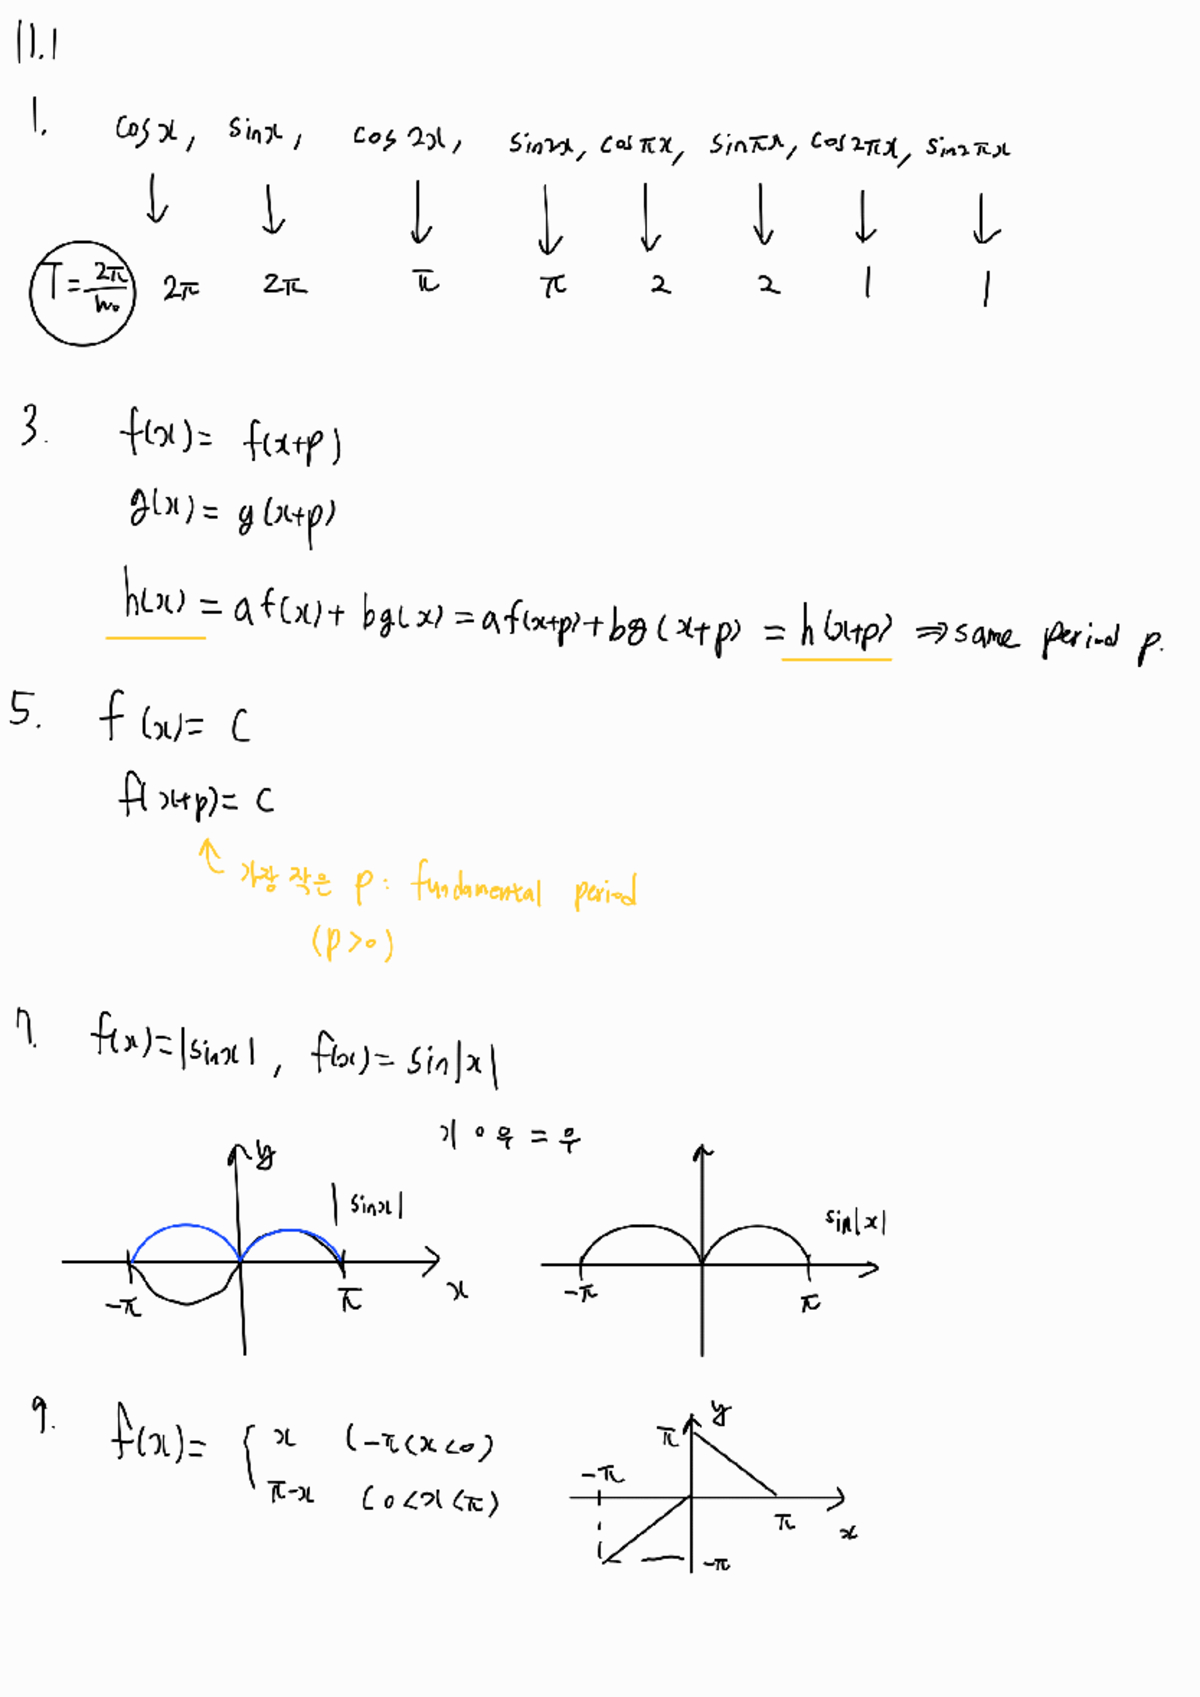 11.1
1. cos x, sin x, cos 2x, sin2x, cos πx, sin πx, cos 2πx, sin 2πx
↓ ↓ ↓ ↓ ↓ ↓ ↓ ↓
T = 2π/w₀ 2π 2π π π 2 2 1 1
3. f(x) = f(x+p)
g(x) = g(x+p)
h(x) = a f(x) + bg(x) = a f(x+p) + bg(x+p) = h(x+p) ⇒ same period p.
5. f(x) = C
f(x+p) = C
↑ 가장 작은 p : fundamental period
(p>0)
7. f(x) = |sin x| , f(x) = sin|x|
기∘우 = 우
y
|sin x|
-π π x
sin|x|
-π π
9. f(x) = { x (-π < x < 0)
π-x (0 < x < π)
y
π
-π
π x
-π